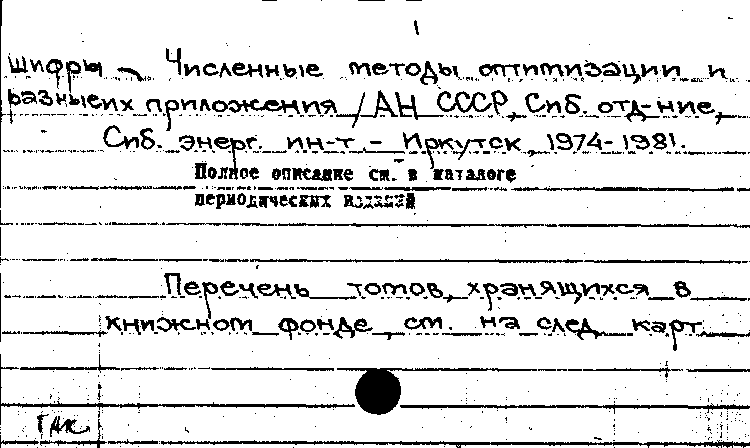 шифры Численные методы оптимизации и
разные их приложения / АН СССР, Сиб. отд-ние,
Сиб. энерг. ин-т. - Иркутск, 1974-1981.
Полное описание см. в каталоге
периодических изданий
Перечень томов, хранящихся в
книжном фонде, см. на след. карт.
ГАК